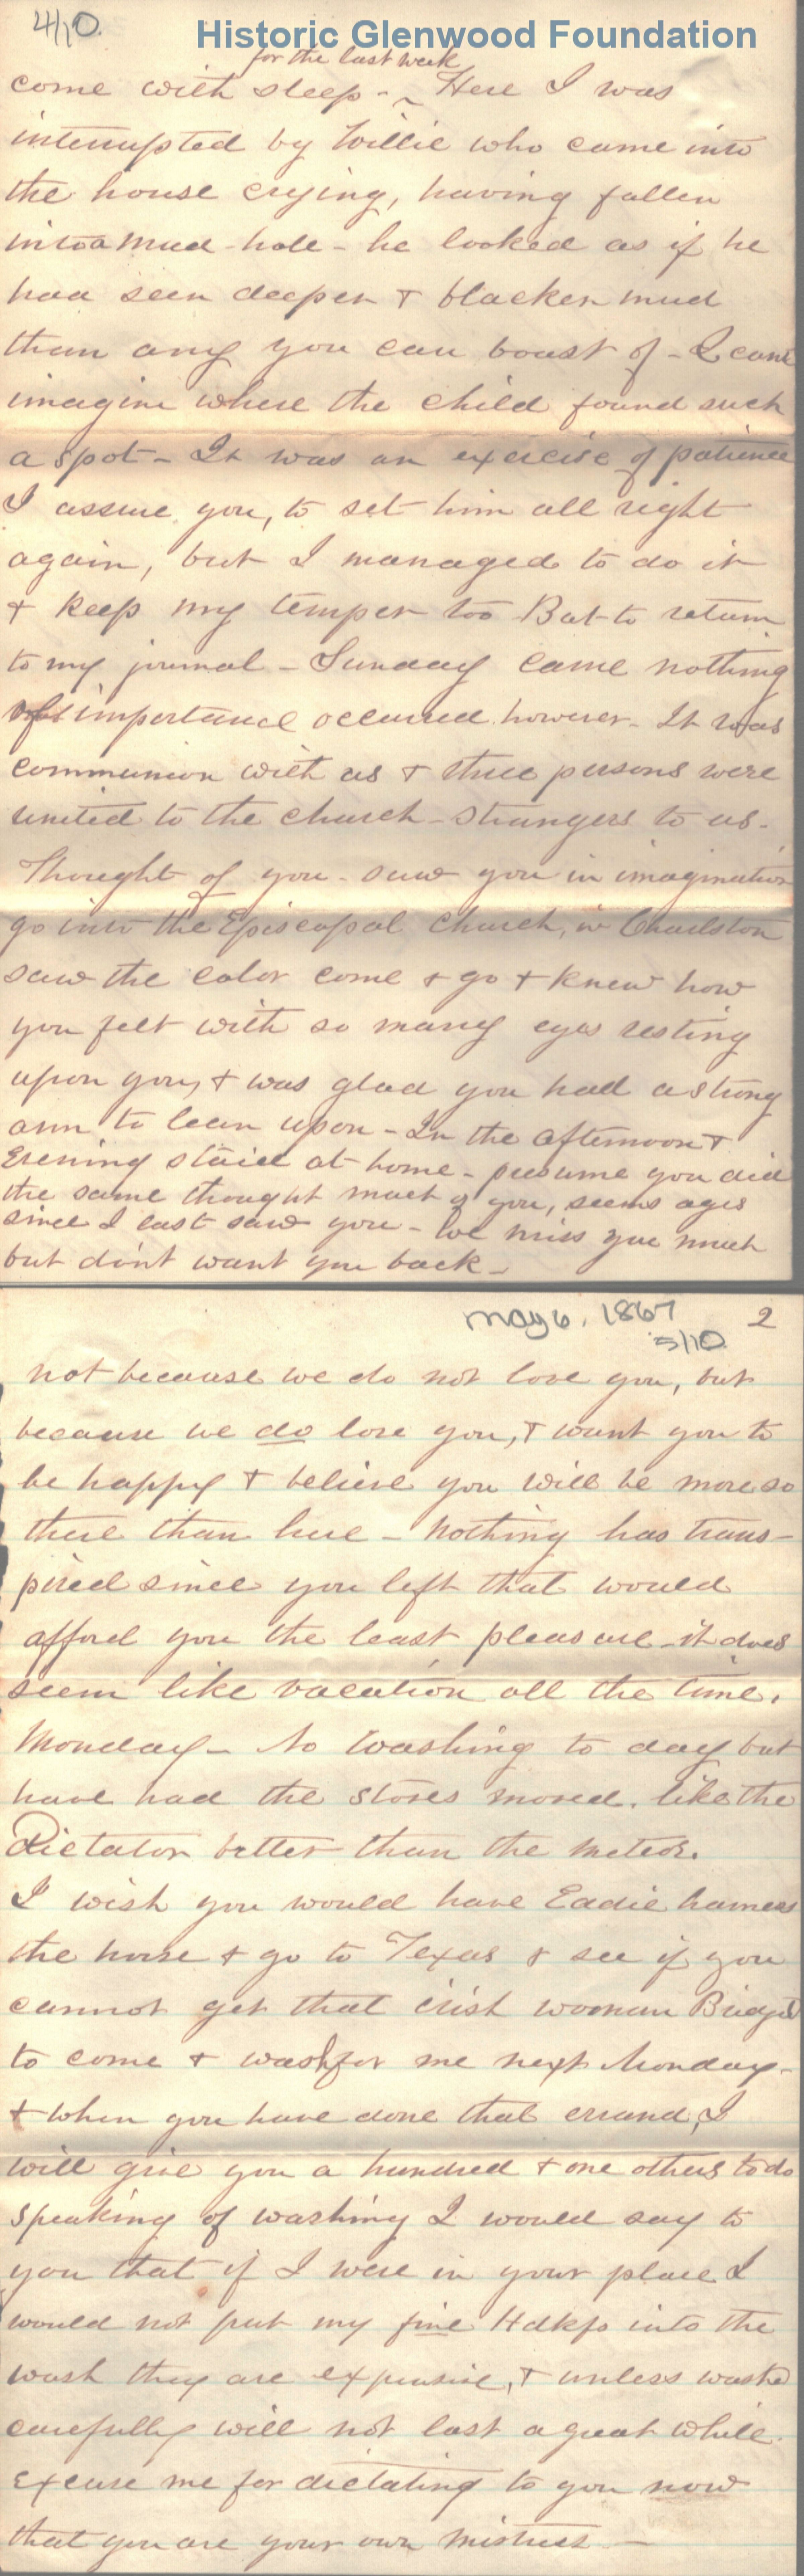 4/10.
Historic Glenwood Foundation
for the last week
come with sleep - Here I was
interrupted by Willie who came into
the house crying, having fallen
into a mud-hole - he looked as if he
had seen deeper & blacker mud
than any you can boast of - I cant
imagine where the child found such
a spot - It was an exercise of patience
I assure you, to set him all right
again, but I managed to do it
& keep my temper too But to return
to my journal - Sunday came nothing
of importance occurred however - It was
communion with us & three persons were
united to the church - strangers to us -
Thought of you - saw you in imagination
go into the Episcopal Church, in Charlston
saw the color come & go & knew how
you felt with so many eyes resting
upon you, & was glad you had a strong
arm to lean upon - In the afternoon &
Evening staid at home - presume you did
the same thought much of you, seems ages
since I last saw you - We miss you much
but dont want you back -
May 6, 1867 2
5/10
not because we do not love you, but
because we do love you, & want you to
be happy & believe you will be more so
there than here - Nothing has trans-
pired since you left that would
afford you the least pleasure - it does
seem like vacation all the time.
Monday - No washing to day but
have had the stoves moved. like the
Dictator better than the Meteor.
I wish you would have Eadie harness
the horse & go to Texas & see if you
cannot get that irish woman Bridget
to come & wash for me next Monday -
& when you have done that errand, I
will give you a hundred & one others to do
speaking of washing I would say to
you that if I were in your place I
would not put my fine Hdkfs into the
wash they are expensive, & unless washed
carefully will not last a great while.
Excuse me for dictating to you now
that you are your own mistress -